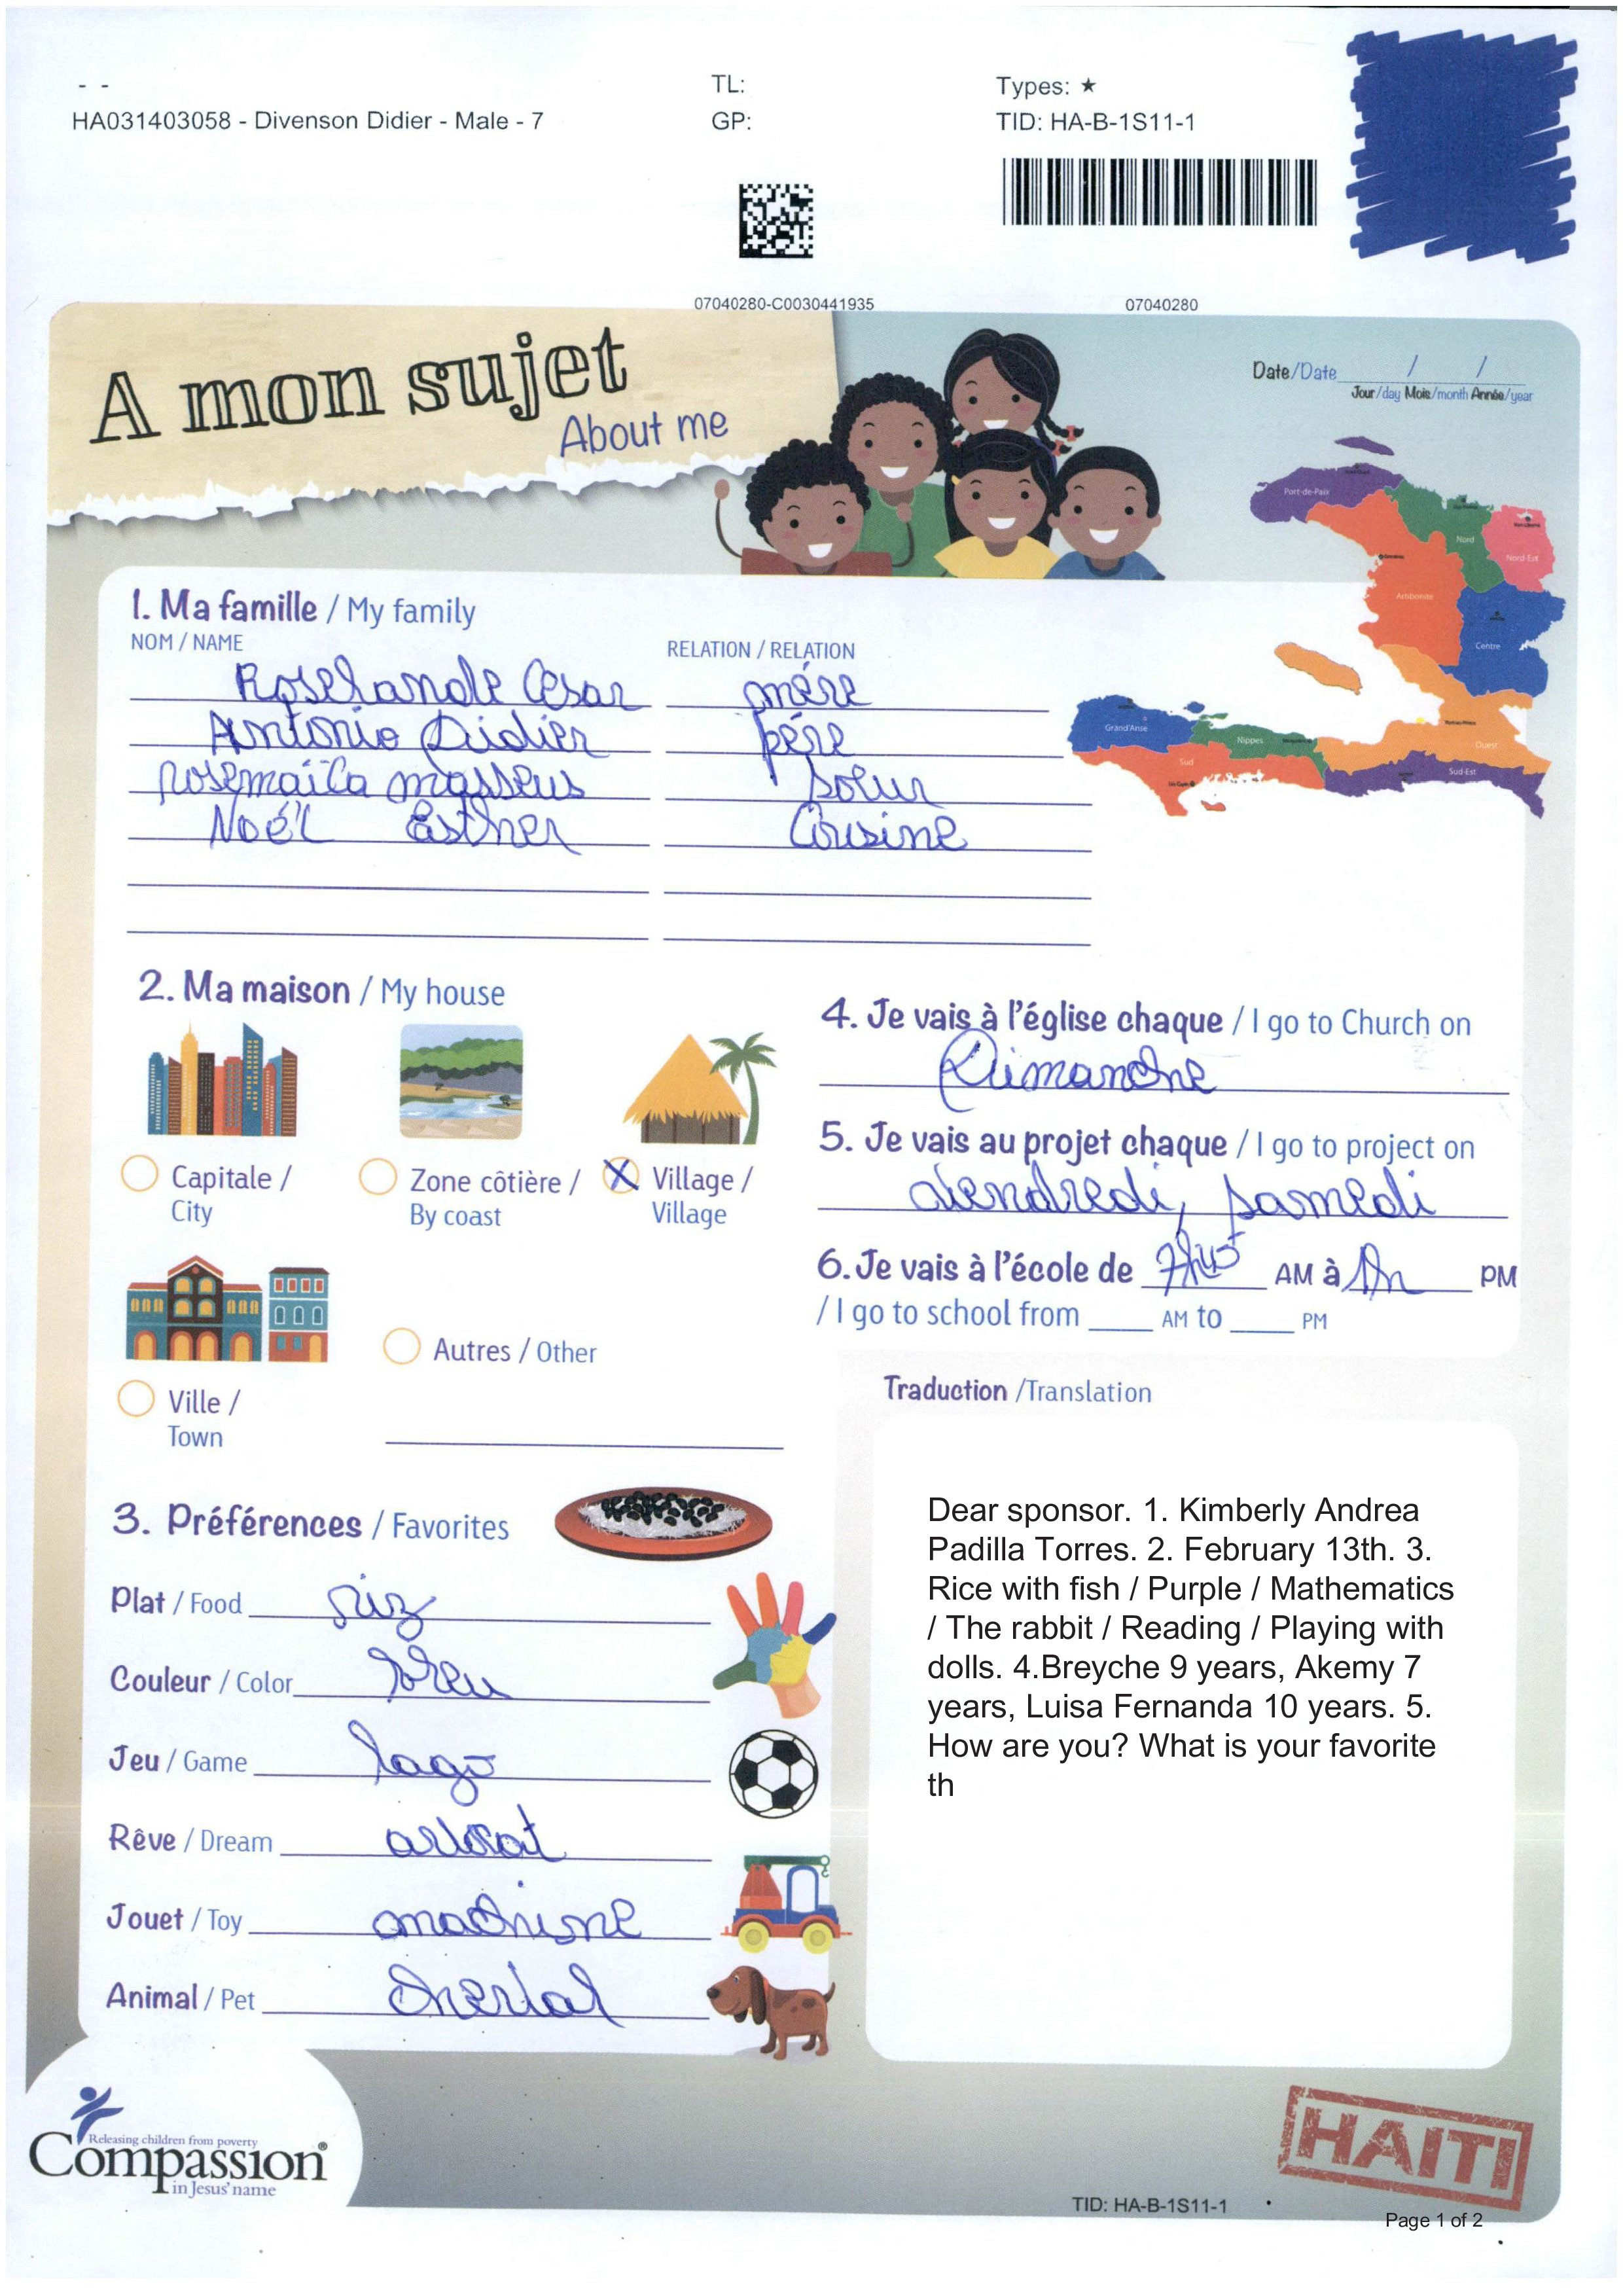 - -
HA031403058 - Divenson Didier - Male - 7
TL:
GP:
Types: ★
TID: HA-B-1S11-1
07040280-C0030441935
07040280
A mon sujet
About me
Date/Date / /
Jour/day Mois/month Année/year
Port-de-Paix
Nord
Nord-Est
Artibonite
Centre
Grand'Anse
Nippes
Ouest
Sud
Sud-Est
1. Ma famille / My family
NOM / NAME RELATION / RELATION
Roselande Cesar mére
Antonio Didier pére
masseus soeur
Noél Esther Cousine
2. Ma maison / My house
Capitale / City
Zone côtière / By coast
X Village / Village
Ville / Town
Autres / Other
3. Préférences / Favorites
Plat / Food riz
Couleur / Color bleu
Jeu / Game lago
Rêve / Dream
Jouet / Toy machine
Animal / Pet cheval
4. Je vais à l'église chaque / I go to Church on
Dimanche
5. Je vais au projet chaque / I go to project on
vendredi, samedi
6. Je vais à l'école de AM à PM
/ I go to school from ____ AM to ____ PM
Traduction /Translation
Dear sponsor. 1. Kimberly Andrea
Padilla Torres. 2. February 13th. 3.
Rice with fish / Purple / Mathematics
/ The rabbit / Reading / Playing with
dolls. 4.Breyche 9 years, Akemy 7
years, Luisa Fernanda 10 years. 5.
How are you? What is your favorite
th
Releasing children from poverty
Compassion®
in Jesus' name
HAITI
TID: HA-B-1S11-1
Page 1 of 2